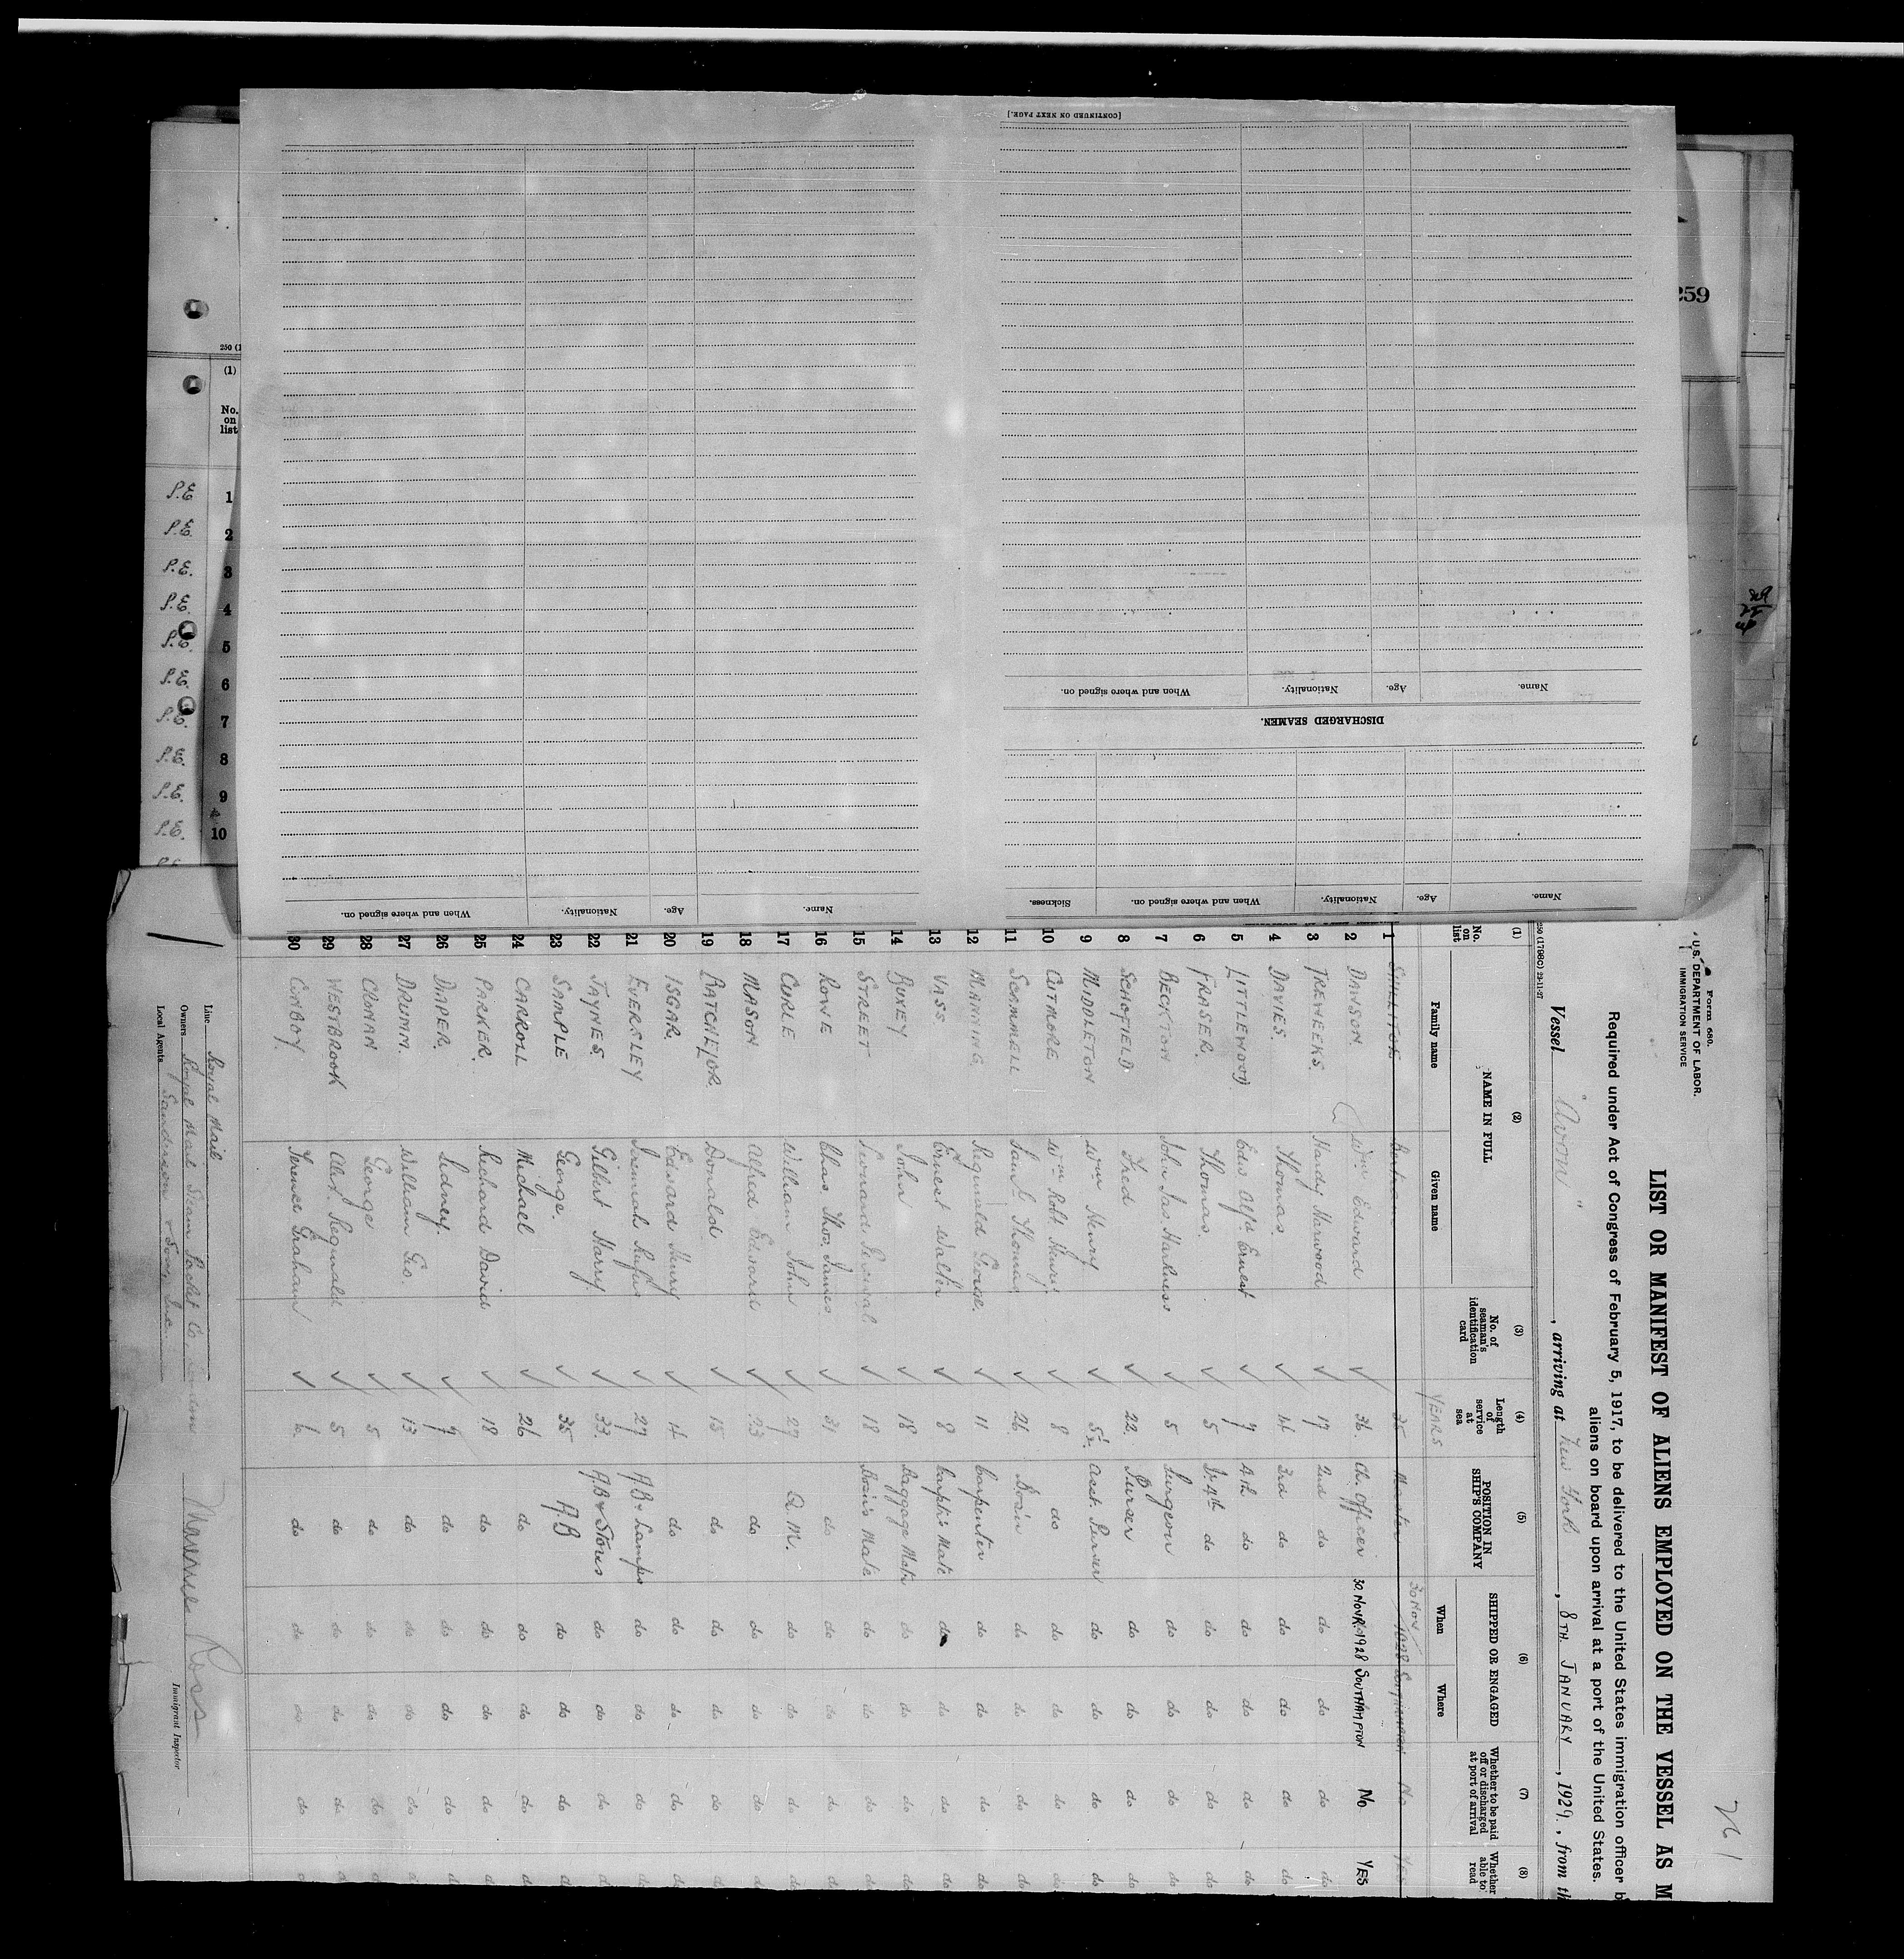 [CONTINUED ON NEXT PAGE.]
Name.
Age.
Nationality.
When and where signed on.
DISCHARGED SEAMEN.
Name.
Age.
Nationality.
When and where signed on.
Sickness.
Name.
Age.
Nationality.
When and where signed on.
259
250 (1
(1)
No. on list
P.E 1
P.E. 2
P.E. 3
P.E. 4
P.E. 5
P.E. 6
P.E. 7
P.E. 8
P.E. 9
P.E. 10
Form 680.
U.S. DEPARTMENT OF LABOR.
IMMIGRATION SERVICE
LIST OR MANIFEST OF ALIENS EMPLOYED ON THE VESSEL AS M
Required under Act of Congress of February 5, 1917, to be delivered to the United States immigration officer b
aliens on board upon arrival at a port of the United States.
Vessel "Avon", arriving at New York, 8TH JANUARY, 1929, from th
250 (1798C) 29-11-27
(1) (2) (3) (4) (5) (6) (7) (8)
No. on list NAME IN FULL No. of seaman's identification card Length of service at sea POSITION IN SHIP'S COMPANY SHIPPED OR ENGAGED Whether to be paid off or discharged at port of arrival Whether able to read
Family name Given name When Where
YEARS
1 35 Master 30 Nov 1928 Southampton No Yes
2 DAWSON Wm Edward ✓ 36 Ch. Officer 30 NOVR 1928 SOUTHAMPTON No YES
3 TREWEEKS Hardy Harwood ✓ 17 2nd do do do do do
4 DAVIES. Thomas. ✓ 14 3rd do do do do do
5 LITTLEWOOD Edw Alfd Ernest ✓ 7 4th do do do do do
6 FRASER. Thomas. ✓ 5 Jr 4th do do do do do
7 BECKTON John Jas. Harkness ✓ 5 Surgeon do do do do
8 SCHOFIELD Fred ✓ 22 Purser do do do do
9 MIDDLETON Wm Henry ✓ 5½ Asst. Purser do do do do
10 CUTMORE Wm Robt Henry ✓ 8 do do do do do
11 SCAMMELL Saml Thomas ✓ 26 Bosin do do do do
12 MANNING Reginald George. ✓ 11 Carpenter do do do do
13 VASS Ernest Walter ✓ 8 Carptr's Mate do do do do
14 BUXEY John ✓ 18 Baggage Mastr do do do do
15 STREET Leonard Percival ✓ 18 Bosin's Mate do do do do
16 ROWE Chas Thos. James ✓ 31 do do do do
17 CURLE William John ✓ 27 Q.M. do do do do
18 MASON Alfred Edward ✓ 23 do do do do do
19 BATCHELOR Donald ✓ 15 do do do do do
20 ISGAR. Edward Henry ✓ 14 do do do do do
21 EVERSLEY Jeremiah Rufus ✓ 27 A.B & Lamps do do do do
22 JAYNES. Gilbert Harry. ✓ 33. A.B & Stores do do do do
23 SAMPLE George. ✓ 35 A.B do do do do
24 CARROLL Michael ✓ 26 do do do do do
25 PARKER. Richard David ✓ 18 do do do do do
26 DIAPER. Sidney. ✓ 7 do do do do do
27 DRUMM. William Geo. ✓ 13 do do do do do
28 CRONAN George ✓ 5 do do do do do
29 WESTBROOK Alex Reginald ✓ 5 do do do do do
30 CONBOY. Terence Graham ✓ 6 do do do do do
Line Royal Mail
Owners Royal Mail Steam Packet Co.
Local Agents Sanderson & Son, Inc.
Immigrant Inspector